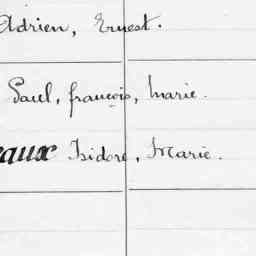 Adrien, Ernest.
Paul, françois, marie.
eaux Isidore, Marie.